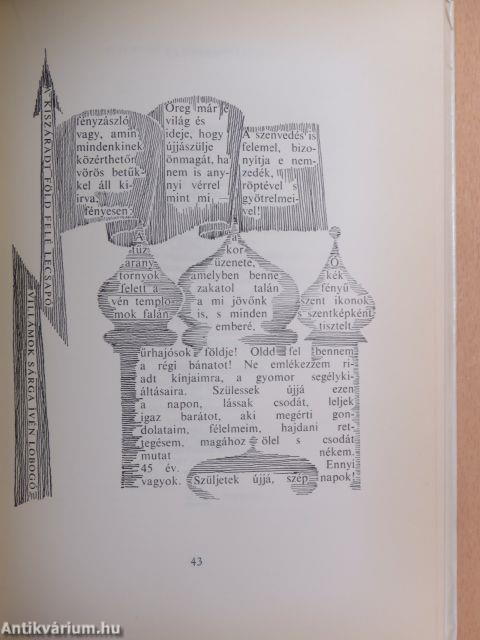 A KISZÁRADT FÖLD FELÉ LECSAPÓ
VILLÁMOK SÁRGA ÍVÉN LOBOGÓ
fényzászló
vagy, amin
mindenkinek
közérthetőn
vörös betűk-
kel áll ki-
írva,
fényesen:
Öreg már e
világ és
ideje, hogy
újjászülje
önmagát, ha
nem is any-
nyi vérrel
mint mi, —
A szenvedés is
felemel, bizo-
nyítja e nem-
zedék,
röptével s
gyötrelmei-
vel!
A
tűz
arany
tornyok
felett a
vén templo-
mok falán,
a
kor
üzenete,
amelyben benne
zakatol talán
a mi jövőnk
is, s minden
emberé.
Ó
kék
fényű
szent ikonok
s szentképként
tisztelt
űrhajósok földje! Oldd fel bennem
a régi bánatot! Ne emlékezzem ri-
adt kínjaimra, a gyomor segélyki-
áltásaira. Szülessek újjá ezen
a napon, lássak csodát, leljek
igaz barátot, aki megérti gon-
dolataim, félelmeim, hajdani ret-
tegésem, magához ölel s csodát
mutat nékem.
45 év. Ennyi
vagyok. Szüljetek újjá, szép napok!
43
Antikvárium.hu